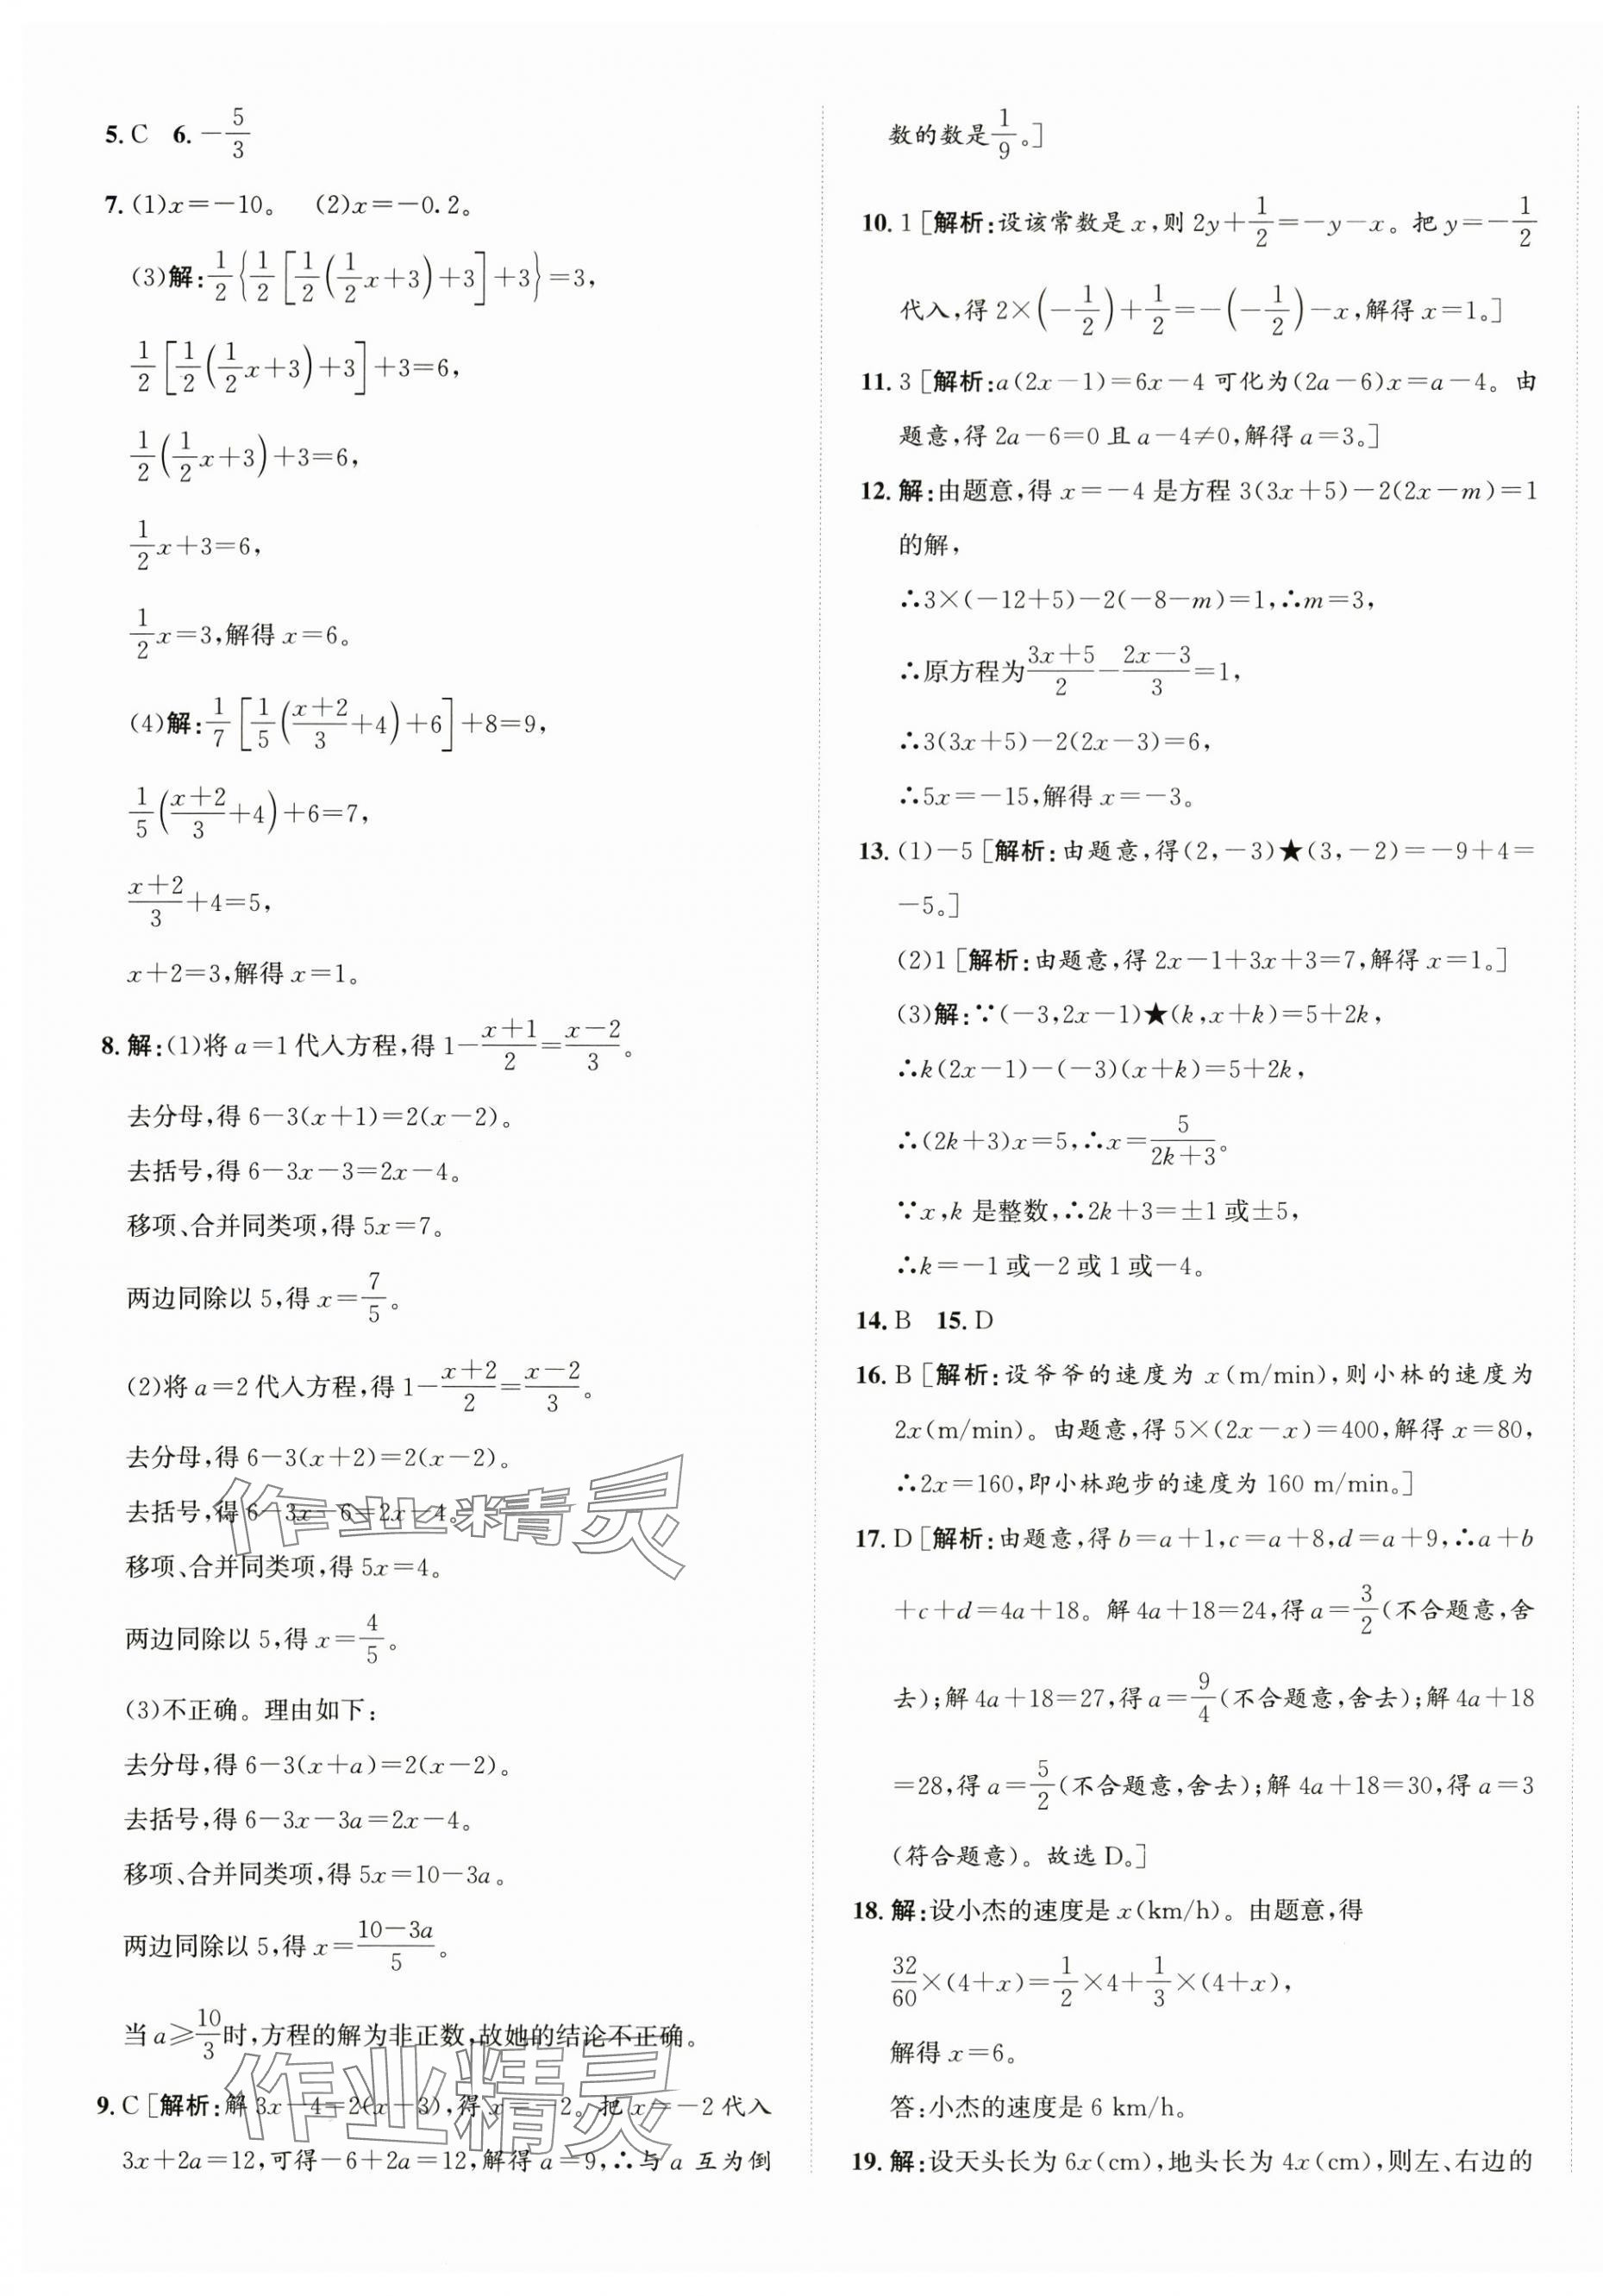 5. C  6. －5/3
7. (1)x＝－10。 (2)x＝－0.2。
(3)解:1/2{1/2[1/2(1/2x＋3)＋3]＋3}＝3,
1/2[1/2(1/2x＋3)＋3]＋3＝6,
1/2(1/2x＋3)＋3＝6,
1/2x＋3＝6,
1/2x＝3,解得 x＝6。
(4)解:1/7[1/5((x＋2)/3＋4)＋6]＋8＝9,
1/5((x＋2)/3＋4)＋6＝7,
(x＋2)/3＋4＝5,
x＋2＝3,解得 x＝1。
8. 解:(1)将 a＝1 代入方程,得 1－(x＋1)/2＝(x－2)/3。
去分母,得 6－3(x＋1)＝2(x－2)。
去括号,得 6－3x－3＝2x－4。
移项、合并同类项,得 5x＝7。
两边同除以 5,得 x＝7/5。
(2)将 a＝2 代入方程,得 1－(x＋2)/2＝(x－2)/3。
去分母,得 6－3(x＋2)＝2(x－2)。
去括号,得 6－3x－6＝2x－4。
移项、合并同类项,得 5x＝4。
两边同除以 5,得 x＝4/5。
(3)不正确。理由如下:
去分母,得 6－3(x＋a)＝2(x－2)。
去括号,得 6－3x－3a＝2x－4。
移项、合并同类项,得 5x＝10－3a。
两边同除以 5,得 x＝(10－3a)/5。
当 a≥10/3时,方程的解为非正数,故她的结论不正确。
9. C [解析:解 3x－4＝2(x－3),得 x＝－2。把 x＝－2 代入
3x＋2a＝12,可得－6＋2a＝12,解得 a＝9,∴与 a 互为倒
数的数是1/9。]
10. 1 [解析:设该常数是 x,则 2y＋1/2＝－y－x。把 y＝－1/2
代入,得 2×(－1/2)＋1/2＝－(－1/2)－x,解得 x＝1。]
11. 3 [解析:a(2x－1)＝6x－4 可化为(2a－6)x＝a－4。由
题意,得 2a－6＝0 且 a－4≠0,解得 a＝3。]
12. 解:由题意,得 x＝－4 是方程 3(3x＋5)－2(2x－m)＝1
的解,
∴3×(－12＋5)－2(－8－m)＝1,∴m＝3,
∴原方程为(3x＋5)/2－(2x－3)/3＝1,
∴3(3x＋5)－2(2x－3)＝6,
∴5x＝－15,解得 x＝－3。
13. (1)－5 [解析:由题意,得(2,－3)★(3,－2)＝－9＋4＝
－5。]
(2)1 [解析:由题意,得 2x－1＋3x＋3＝7,解得 x＝1。]
(3)解:∵(－3,2x－1)★(k,x＋k)＝5＋2k,
∴k(2x－1)－(－3)(x＋k)＝5＋2k,
∴(2k＋3)x＝5,∴x＝5/(2k＋3)。
∵x,k 是整数,∴2k＋3＝±1 或±5,
∴k＝－1 或－2 或 1 或－4。
14. B  15. D
16. B [解析:设爷爷的速度为 x(m/min),则小林的速度为
2x(m/min)。由题意,得 5×(2x－x)＝400,解得 x＝80,
∴2x＝160,即小林跑步的速度为 160 m/min。]
17. D [解析:由题意,得 b＝a＋1,c＝a＋8,d＝a＋9,∴a＋b
＋c＋d＝4a＋18。解 4a＋18＝24,得 a＝3/2(不合题意,舍
去);解 4a＋18＝27,得 a＝9/4(不合题意,舍去);解 4a＋18
＝28,得 a＝5/2(不合题意,舍去);解 4a＋18＝30,得 a＝3
(符合题意)。故选 D。]
18. 解:设小杰的速度是 x(km/h)。由题意,得
32/60×(4＋x)＝1/2×4＋1/3×(4＋x),
解得 x＝6。
答:小杰的速度是 6 km/h。
19. 解:设天头长为 6x(cm),地头长为 4x(cm),则左、右边的
作业精灵
作业精灵